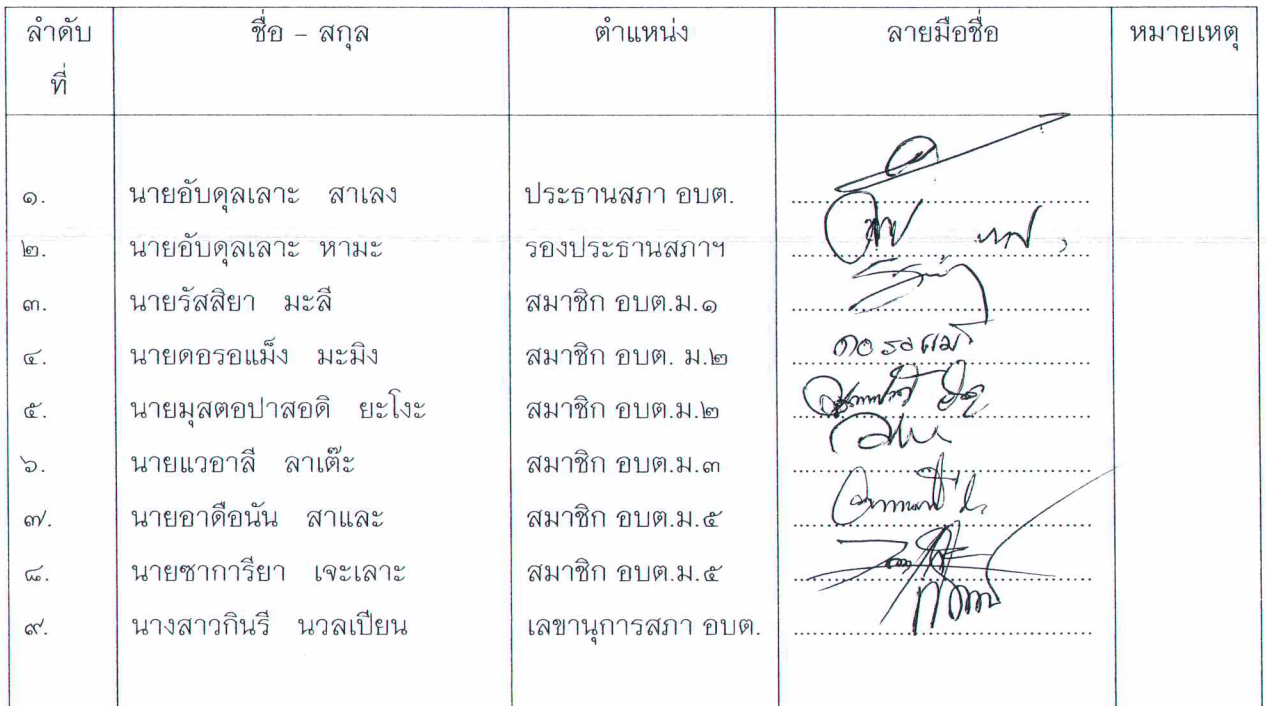 ลำดับที่ ชื่อ – สกุล ตำแหน่ง ลายมือชื่อ หมายเหตุ
๑. นายอับดุลเลาะ สาเลง ประธานสภา อบต.
๒. นายอับดุลเลาะ หามะ รองประธานสภาฯ
๓. นายรัสสิยา มะลี สมาชิก อบต.ม.๑
๔. นายดอรอแม็ง มะมิง สมาชิก อบต. ม.๒
๕. นายมุสตอปาสอดิ ยะโงะ สมาชิก อบต.ม.๒
๖. นายแวอาลี ลาเต๊ะ สมาชิก อบต.ม.๓
๗. นายอาดือนัน สาและ สมาชิก อบต.ม.๕
๘. นายซาการียา เจะเลาะ สมาชิก อบต.ม.๕
๙. นางสาวกินรี นวลเปียน เลขานุการสภา อบต.